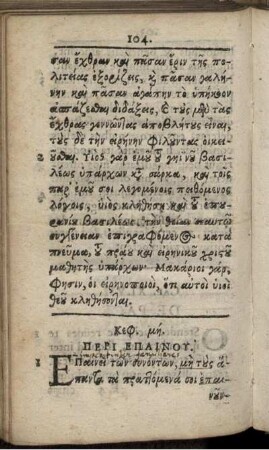 104.
σαν ἔχθραν καὶ πᾶσαν ἔριν τῆς πο-
λιτείας ἐξορίζεις, κ̀ πᾶσαν γαλή-
νην καὶ πᾶσαν ἀγάπην τὸ ὑπήκοον
ἀσπάζεσθαι διδάξας, & τοὺς μὲν τὰς
ἔχθρας γεννῶντας ἀποβλήτους εἶναι,
τοὺς δὲ τὴν εἰρήνην φιλοῦντας οἰκει-
οῦσθαι. Υἱὸς γὰρ ἐμοῦ τοῦ γηΐνου βασι-
λέως ὑπάρχων κ̀ σάρκα, καὶ τοῖς
παρ' ἐμοῦ σοι λεγομένοις πειθόμενος
λόγοις, υἱὸς κληθήσῃ καὶ τοῦ ἐπου-
ρανίου Βασιλέως, τὴν θείαν σαυτῷ
συγγένειαν ἐπιγραφόμενος κατὰ
πνεῦμα, τοῦ πράου καὶ εἰρηνικοῦ χριστοῦ
μαθητὴς ὑπάρχων. Μακάριοι γὰρ,
φησιν, οἱ εἰρηνοποιοὶ, ὅτι αὐτοὶ υἱοὶ
θεοῦ κληθήσονται.
Κεφ. μη.
ΠΕΡΙ ΕΠΑΙΝΟΥ.
ΕΠαινεῖτωσαν συνόντων, μὴ τοὺς ἅ-
παντα τὰ πραττόμενά σοι ἐπαι-
νοῦν-